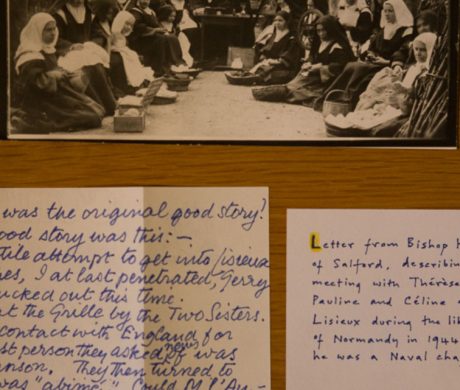 was the original good story?
ood story was this:—
tile attempt to get into lisieux
es, I at last penetrated, Gerry
ucked out this time.
t the Grille by the Two Sisters.
contact with England for
st person they asked news of was
nson. They then turned to
was "abîmé". Could M. l'Au-
Letter from Bishop H
of Salford, describin
meeting with Thérèse
Pauline and Céline
Lisieux during the lib
of Normandy in 1944
he was a Naval cha